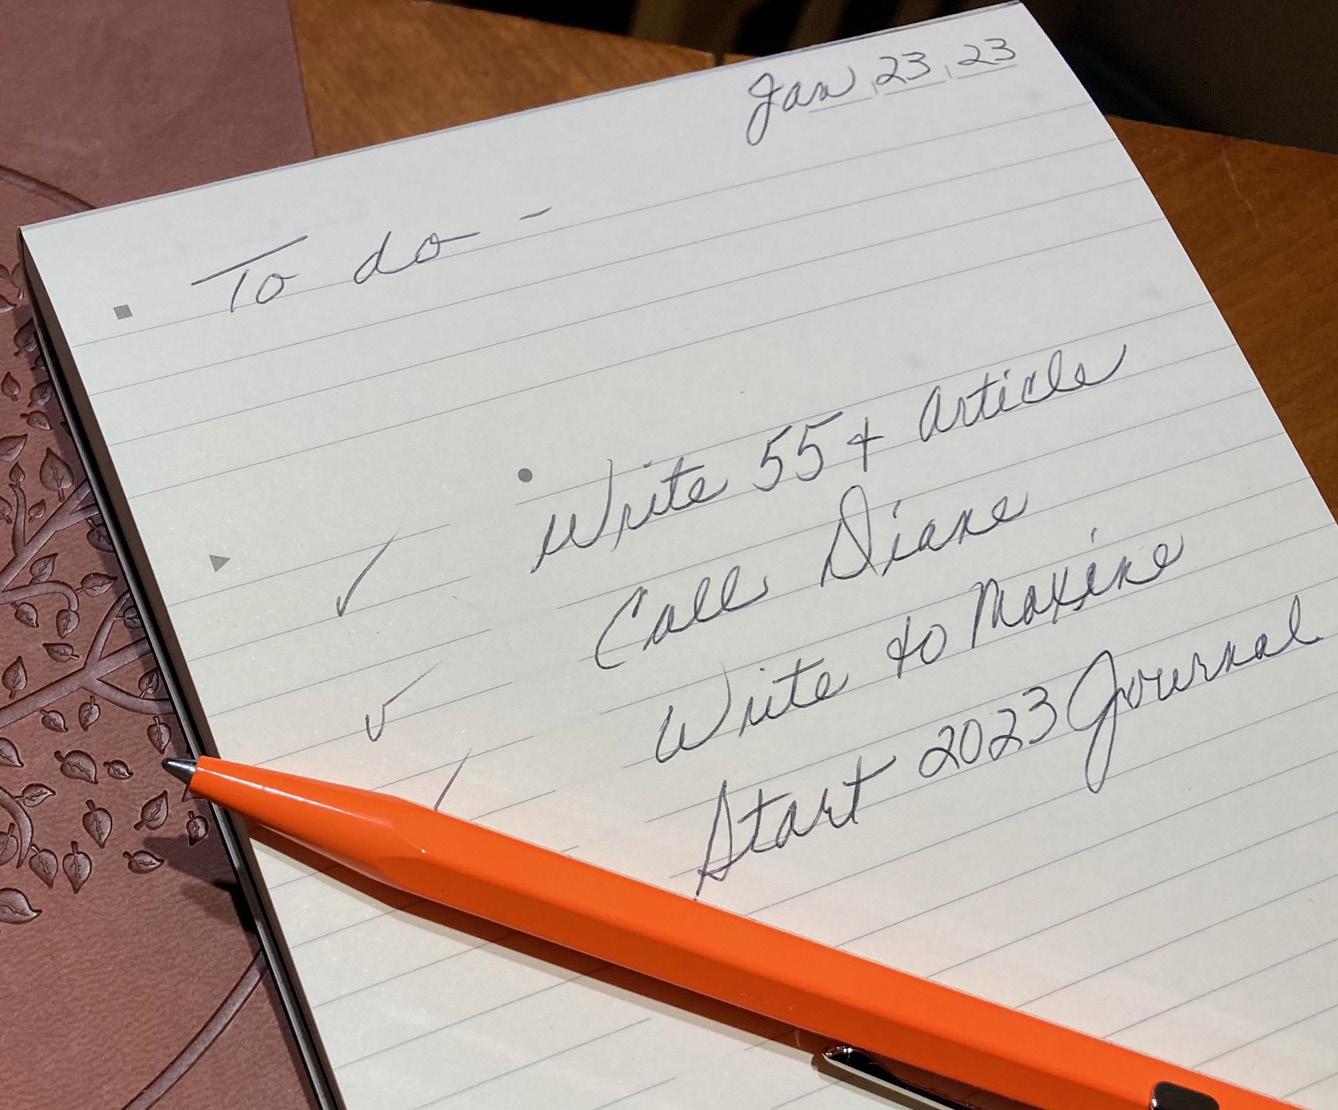 Jan 23, 23
To do -
Write 55+ Article
✓ Call Diane
✓ Write to Maxine
✓ Start 2023 Journal